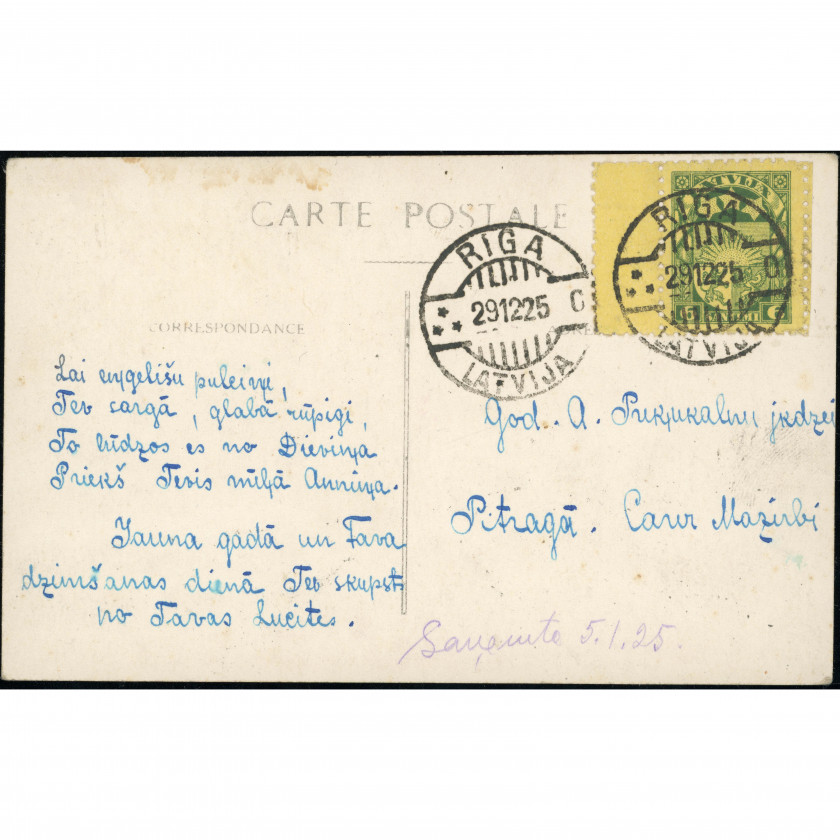 CARTE POSTALE
LATVIJA
RIGA
291225 C
LATVIJA
RIGA
291225 C
LATVIJA
CORRESPONDANCE
Lai eņgelišu pulciņi,
Tev sargā, glabā rūpigi,
To lūdzos es no Dieviņa
Priekš Tevis mīļā Anniņa.
Jauna gadā un Tava
dzimšanas dienā Tev skupst
no Tavas Lucites.
God. A. Puķukalnu jkdzei
Pitragā. Caur Mazirbi
Saņemta 5.1.25.